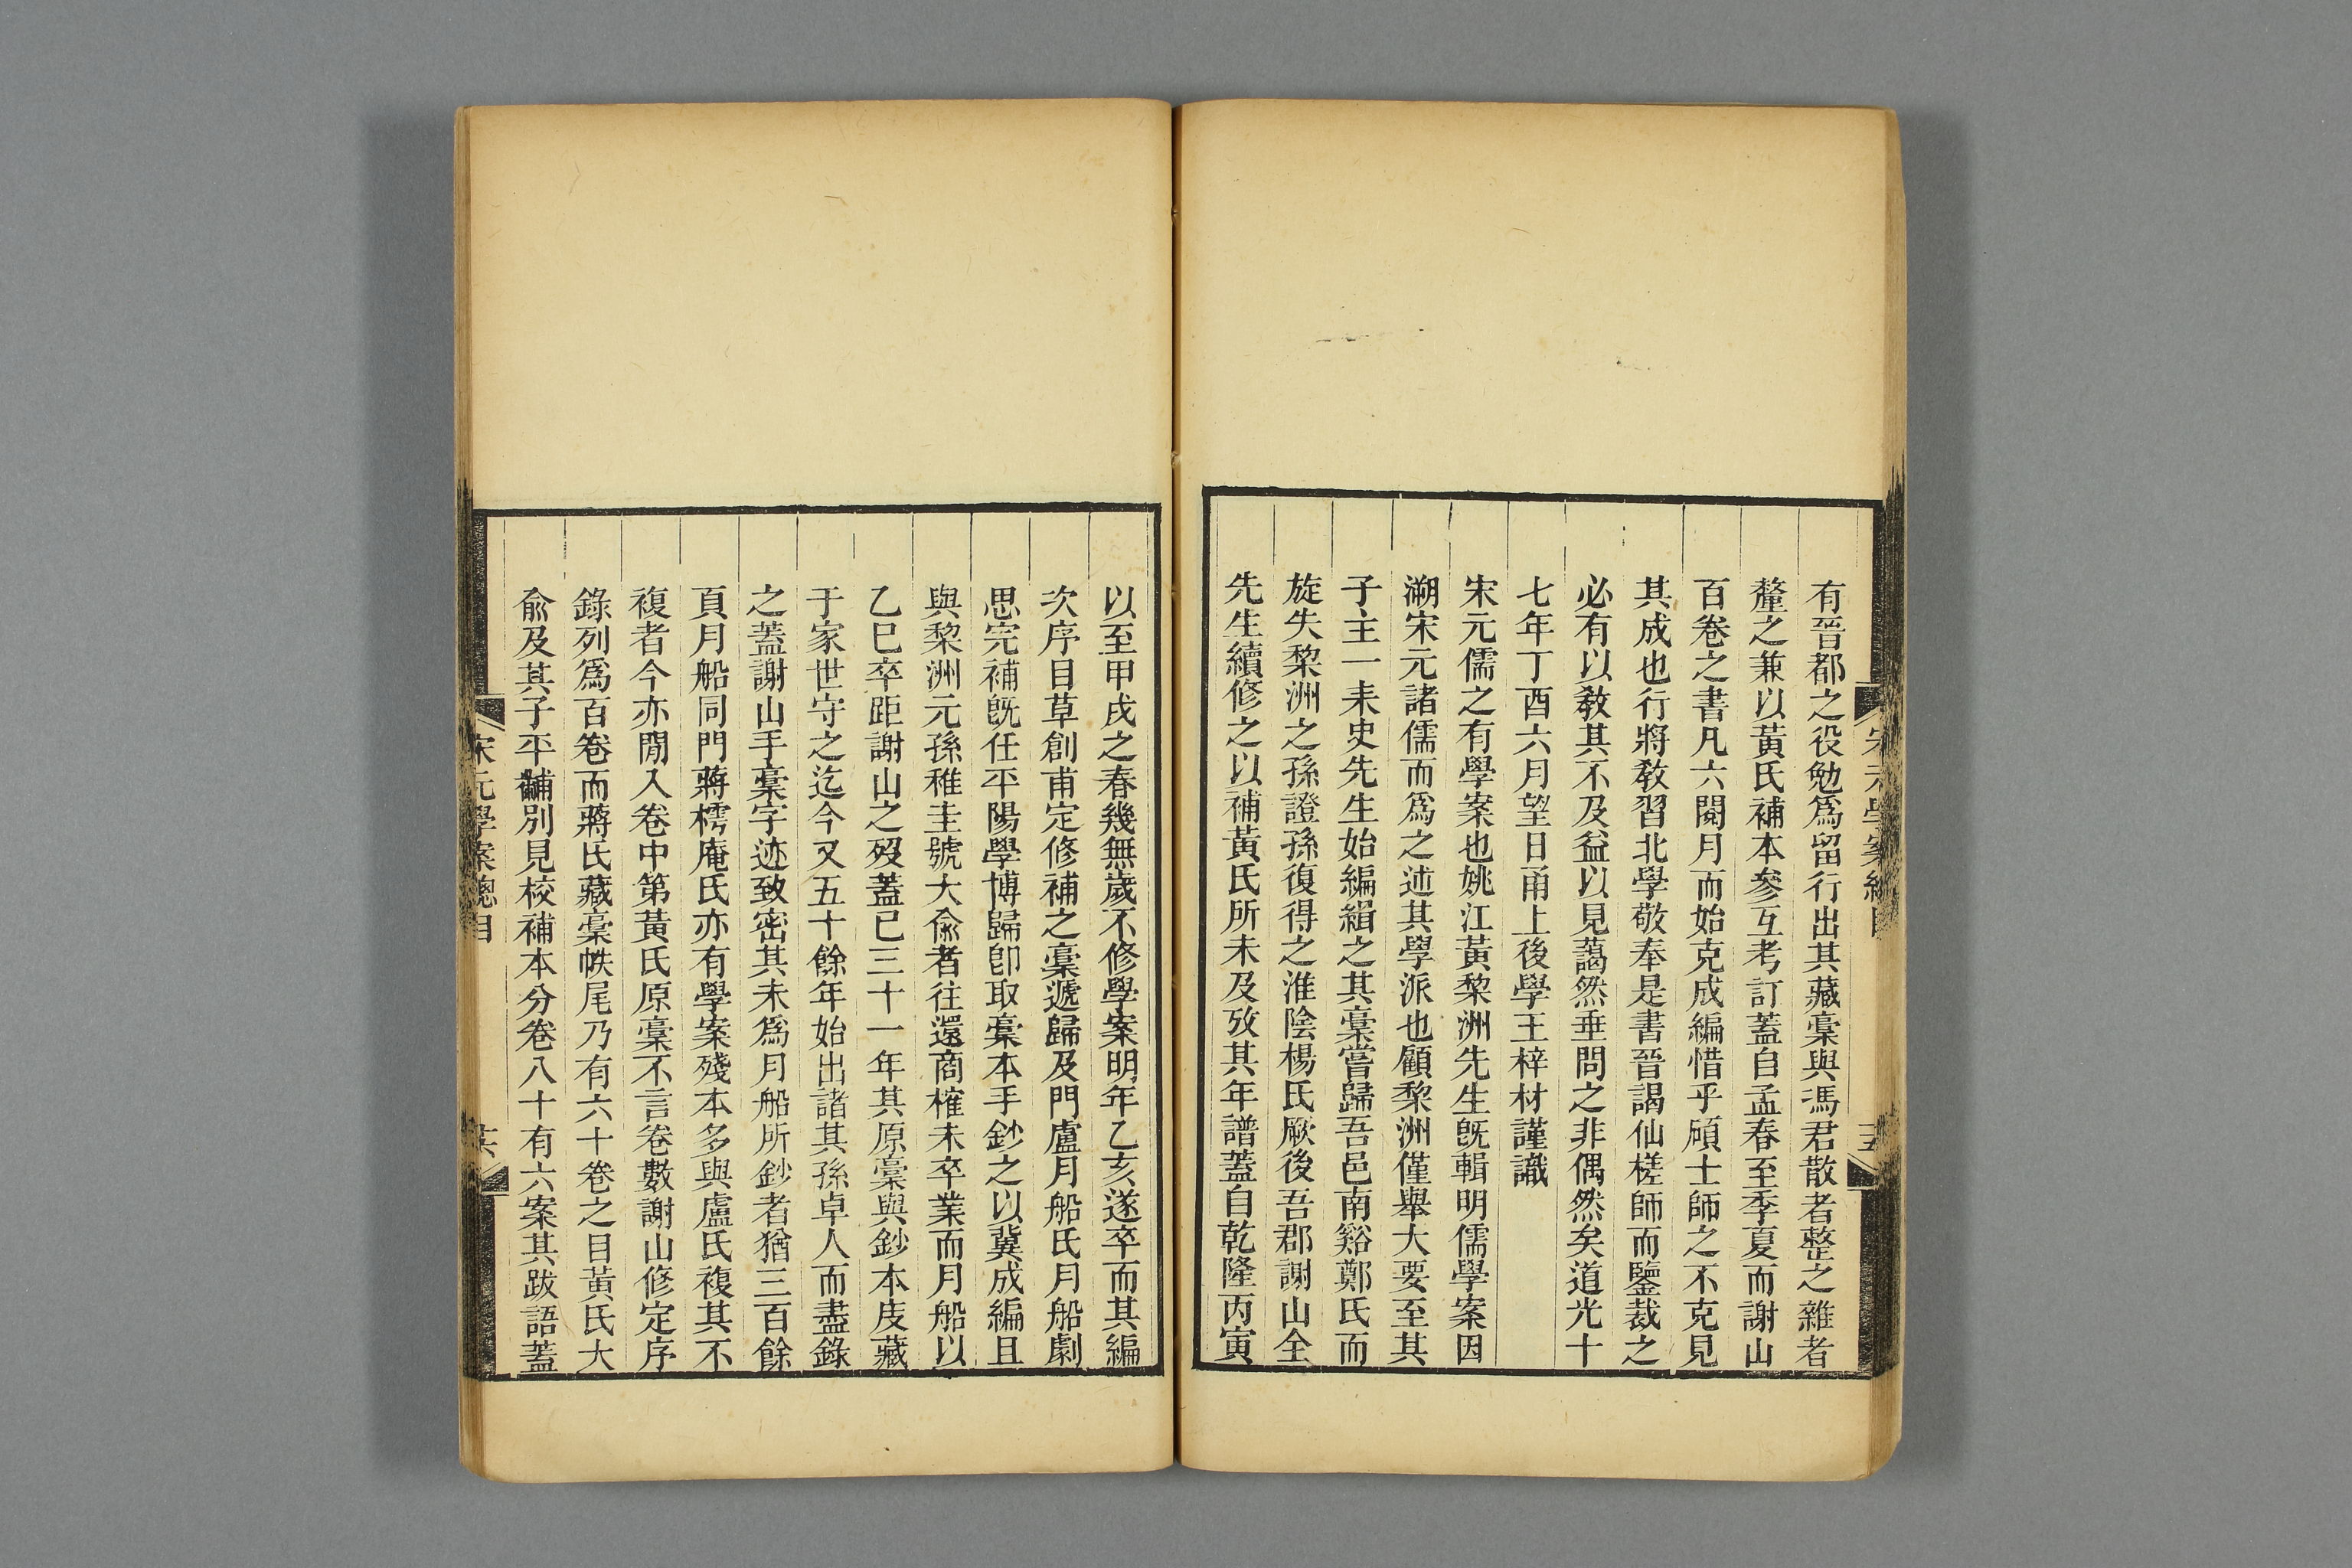 有晉都之役勉爲留行出其藏稾與馮君散者整之雜者
釐之兼以黃氏補本參互考訂蓋自孟春至季夏而謝山
百卷之書凡六閱月而始克成編惜乎碩士師之不克見
其成也行將敎習北學敬奉是書晉謁仙槎師而鑒裁之
必有以敎其不及益以見藹然垂問之非偶然矣道光十
七年丁酉六月望日甬上後學王梓材謹識
宋元儒之有學案也姚江黃梨洲先生旣輯明儒學案因
溯宋元諸儒而爲之述其學派也顧梨洲僅舉大要至其
子主一耒史先生始編緝之其稾嘗歸吾邑南谿鄭氏而
旋失黎洲之孫證孫復得之淮陰楊氏厥後吾郡謝山全
先生續修之以補黃氏所未及攷其年譜蓋自乾隆丙寅
宋元學案總目
以至甲戌之春幾無歲不修學案明年乙亥遂卒而其編
次序目草創甫定修補之稾遞歸及門盧月船氏月船劇
思完補旣任平陽學博歸卽取稾本手鈔之以冀成編且
與黎洲元孫稚圭號大俞者往還商榷未卒業而月船以
乙巳卒距謝山之歿蓋已三十一年其原稾與鈔本庋藏
于家世守之迄今又五十餘年始出諸其孫卓人而盡錄
之蓋謝山手稾字迹致密其未爲月船所鈔者猶三百餘
頁月船同門蔣樗庵氏亦有學案殘本多與盧氏複其不
複者今亦閒入卷中第黃氏原稾不言卷數謝山修定序
錄列爲百卷而蔣氏藏稾帙尾乃有六十卷之目黃氏大
俞及其子平黼別見校補本分卷八十有六案其跋語蓋
宋元學案總目